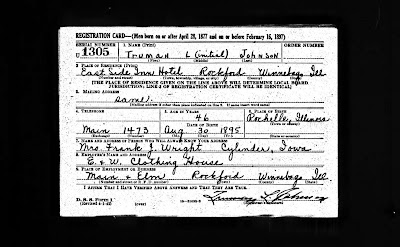 REGISTRATION CARD—(Men born on or after April 28, 1877 and on or before February 16, 1897)
SERIAL NUMBER 1. NAME (Print) ORDER NUMBER
U 1305 Truman L (initial) Johnson
2. PLACE OF RESIDENCE (Print)
East Side Inn Hotel Rockford Winnebago Ill
(Number and street) (Town, township, village, or city) (County) (State)
[THE PLACE OF RESIDENCE GIVEN ON THE LINE ABOVE WILL DETERMINE LOCAL BOARD
JURISDICTION; LINE 2 OF REGISTRATION CERTIFICATE WILL BE IDENTICAL]
3. MAILING ADDRESS
same.
[Mailing address if other than place indicated on line 2. If same insert word same]
4. TELEPHONE 5. AGE IN YEARS 6. PLACE OF BIRTH
46 Rochelle, Illinois
DATE OF BIRTH
Main 1473 Aug 30 1895
7. NAME AND ADDRESS OF PERSON WHO WILL ALWAYS KNOW YOUR ADDRESS
Mrs. Frank J. Wright Cylinder, Iowa
8. EMPLOYER'S NAME AND ADDRESS
E. & W. Clothing House
9. PLACE OF EMPLOYMENT OR BUSINESS
Main & Elm Rockford Winnebago Ill.
(Number and street or R. F. D. number) (Town) (County) (State)
I AFFIRM THAT I HAVE VERIFIED ABOVE ANSWERS AND THAT THEY ARE TRUE.
D. S. S. Form 1
(Revised 4-1-42) (over) Truman L Johnson